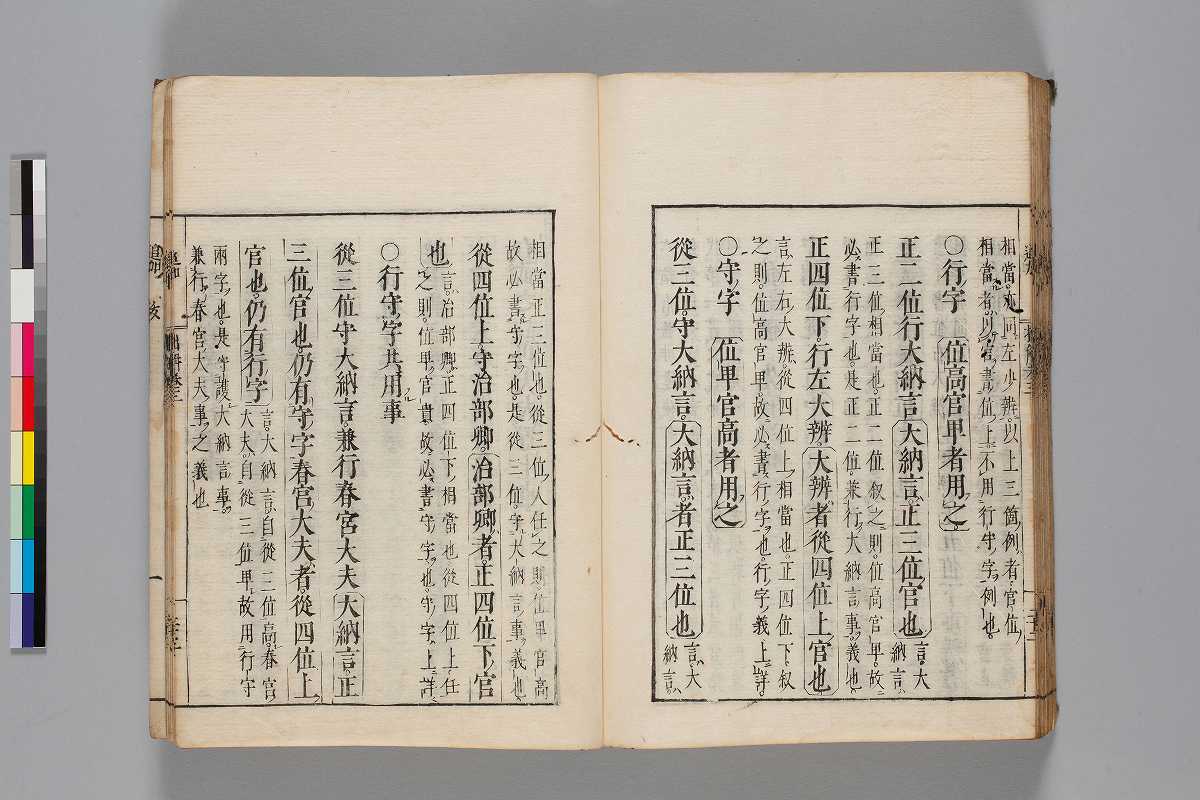 相當亦同左少辨以上三箇例者官位
相當者以官書位上不用行守字例也
〇行字 位高官卑者用之
正二位行大納言 大納言正三位官也 言大納言
正三位相當也正二位叙之則位高官卑故
必書行字也是正二位兼行大納言事義也
正四位下行左大辨 大辨者從四位上官也
言左右大辨從四位上相當也正四位下叙
之則位高官卑故必書行字也行字義上詳
〇守字 位卑官高者用之
從三位守大納言 大納言者正三位也 言大納言
相當正三位也從三位人任之則位卑官高
故必書守字也是從三位守大納言事義也
從四位上守治部卿 治部卿者正四位下官
也 言治部卿正四位下相當也從四位上任
之則位卑官貴故必書守字也守字上詳
〇行守字共用事
從三位守大納言兼行春宮大夫 大納言正
三位官也仍有守字春宮大夫者從四位上
官也仍有行字 言大納言自從三位高春宮
大夫自從三位卑故用行守
兩字也是守護大納言事
兼行春宮大夫事之義也